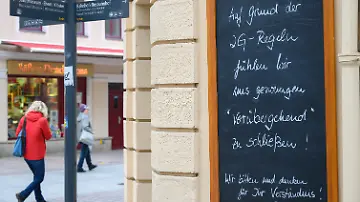 Auf Grund der
2G-Regeln
fühlen wir
uns gezwungen
"Vorübergehend"
zu schließen!
Wir bitten und danken
für Ihr Verständnis!